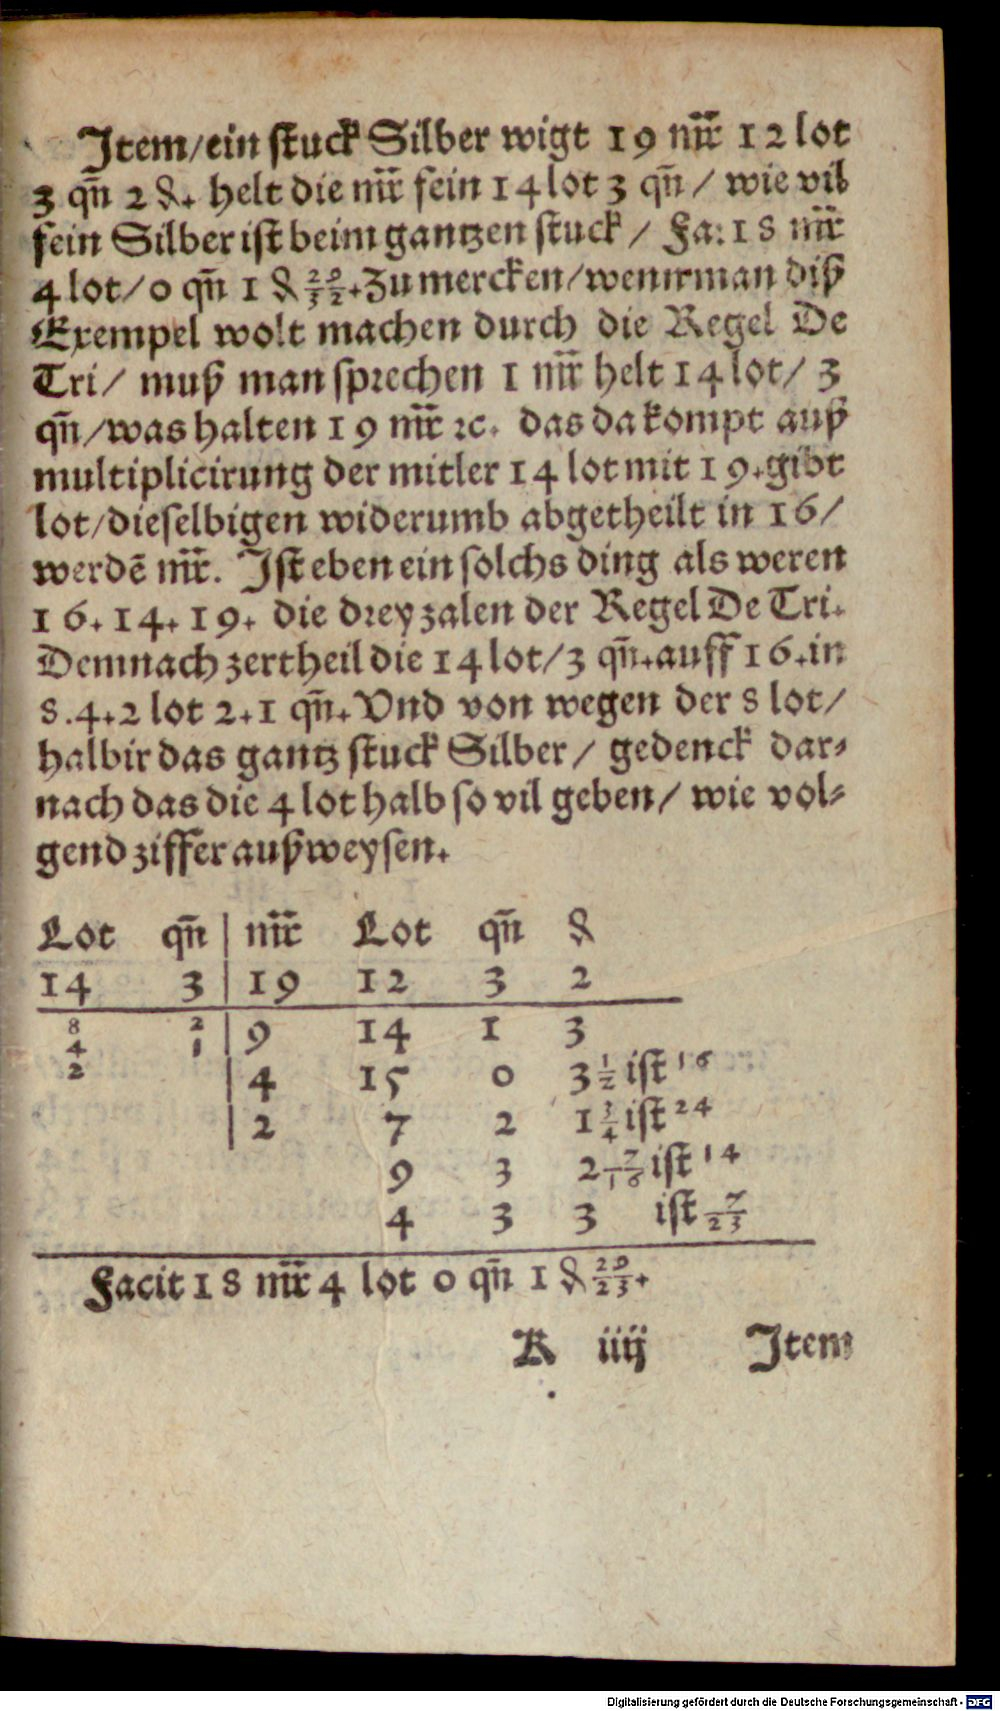 Item/ein stuck Silber wigt 19 mr̈ 12 lot
3 qñ 2 ₰. helt die mr̈ fein 14 lot 3 qñ / wie vil
fein Silber ist beim gantzen stuck / Fa: 18 mr̈
4 lot/ 0 qñ 1 ₰ 2 9/3 2. Zu mercken/wenn man diß
Exempel wolt machen durch die Regel De
Tri/ muß man sprechen 1 mr̈ helt 14 lot/ 3
qñ/was halten 19 mr̈ ⁊c. das da kompt auß
multiplicirung der mitler 14 lot mit 19. gibt
lot/dieselbigen widerumb abgetheilt in 16/
werdē mr̈. Ist eben ein solchs ding als weren
16. 14. 19. die drey zalen der Regel De Tri.
Demnach zertheil die 14 lot/3 qñ. auff 16. in
8. 4. 2 lot 2. 1 qñ. Vnd von wegen der 8 lot/
halbir das gantz stuck Silber/ gedenck dar⸗
nach das die 4 lot halb so vil geben/ wie vol⸗
gend ziffer außweysen.
Lot qñ | mr̈ Lot qñ ₰
14 3 | 19 12 3 2
8 2 | 9 14 1 3
4 1 | 4 15 0 3 1/2 ist 16
2 | 2 7 2 1 3/4 ist 24
9 3 2 7/16 ist 14
4 3 3 ist 7/23
Facit 18 mr̈ 4 lot 0 qñ 1 ₰ 29/23.
K iiij Item
Digitalisierung gefördert durch die Deutsche Forschungsgemeinschaft - DFG